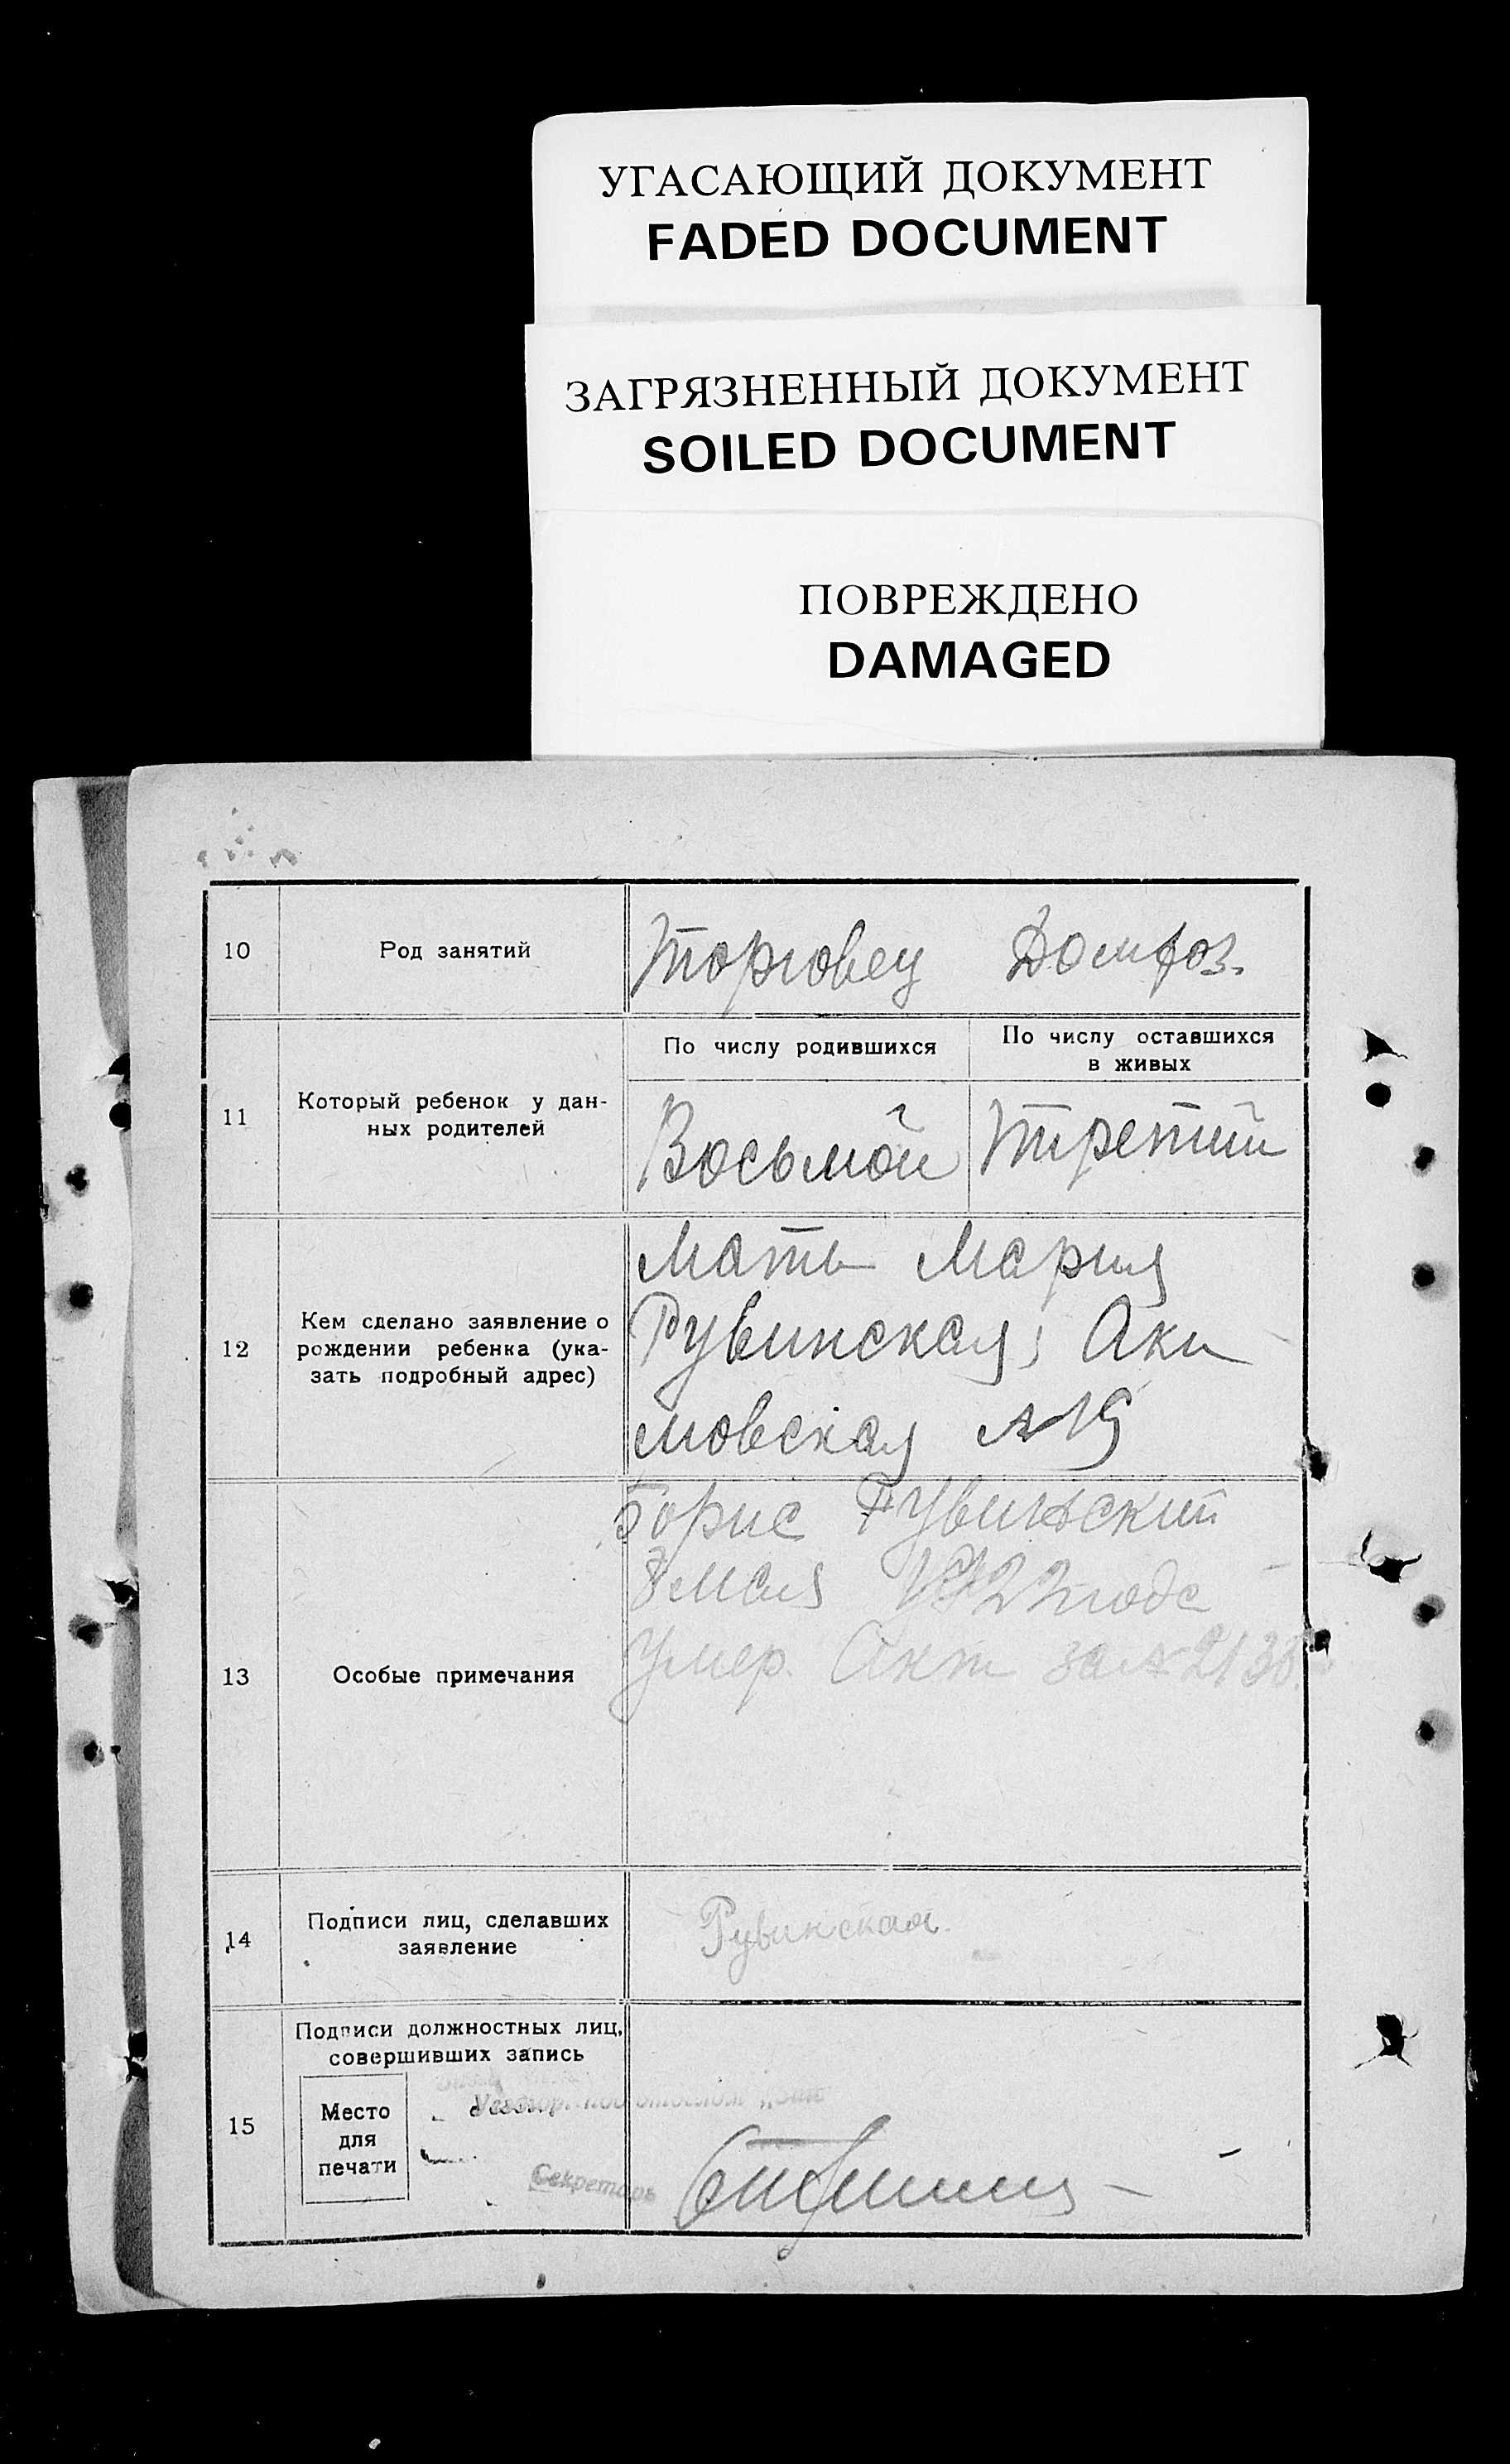 УГАСАЮЩИЙ ДОКУМЕНТ
FADED DOCUMENT
ЗАГРЯЗНЕННЫЙ ДОКУМЕНТ
SOILED DOCUMENT
ПОВРЕЖДЕНО
DAMAGED
10
Род занятий
Торговец Домхоз.
11
Который ребенок у дан-
ных родителей
По числу родившихся
Восьмой
По числу оставшихся
в живых
Третий
12
Кем сделано заявление о
рождении ребенка (ука-
зать подробный адрес)
Мать Мария
Рувинская, Аки
мовская №19
13
Особые примечания
Борис Рувинский
8 мая 1922 года
умер. Акт за № 2138.
14
Подписи лиц, сделавших
заявление
Рувинская
15
Подписи должностных лиц,
совершивших запись
Место
для
печати
Секретарь